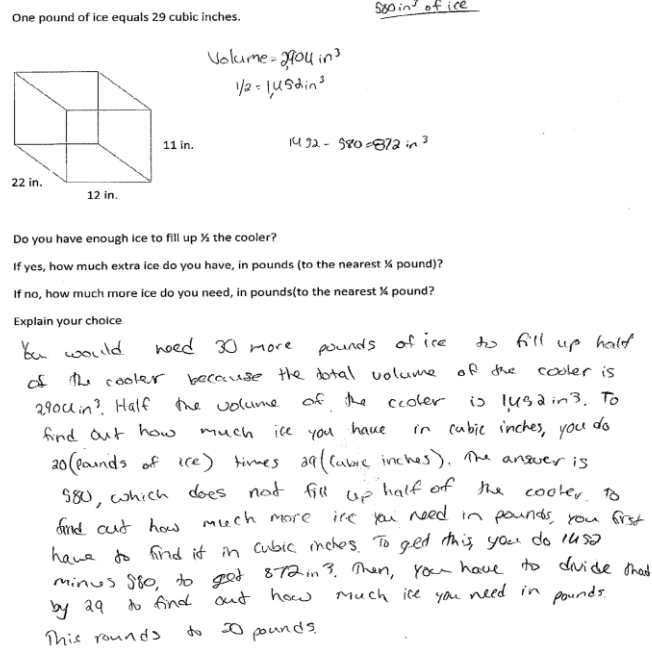 580 in³ of ice
One pound of ice equals 29 cubic inches.
Volume = 2,904 in³
1/2 = 1,452 in³
11 in.
1452 - 580 = 872 in³
22 in.
12 in.
Do you have enough ice to fill up ½ the cooler?
If yes, how much extra ice do you have, in pounds (to the nearest ¼ pound)?
If no, how much more ice do you need, in pounds(to the nearest ¼ pound?
Explain your choice
You would need 30 more pounds of ice to fill up half
of the cooler because the total volume of the cooler is
2904 in³. Half the volume of the cooler is 1452 in3. To
find out how much ice you have in cubic inches, you do
20 (pounds of ice) times 29 (cubic inches). The answer is
580, which does not fill up half of the cooler. To
find out how much more ice you need in pounds, you first
have to find it in cubic inches. To get this, you do 1452
minus 580, to get 872 in³. Then, you have to divide that
by 29 to find out how much ice you need in pounds.
This rounds to 30 pounds.